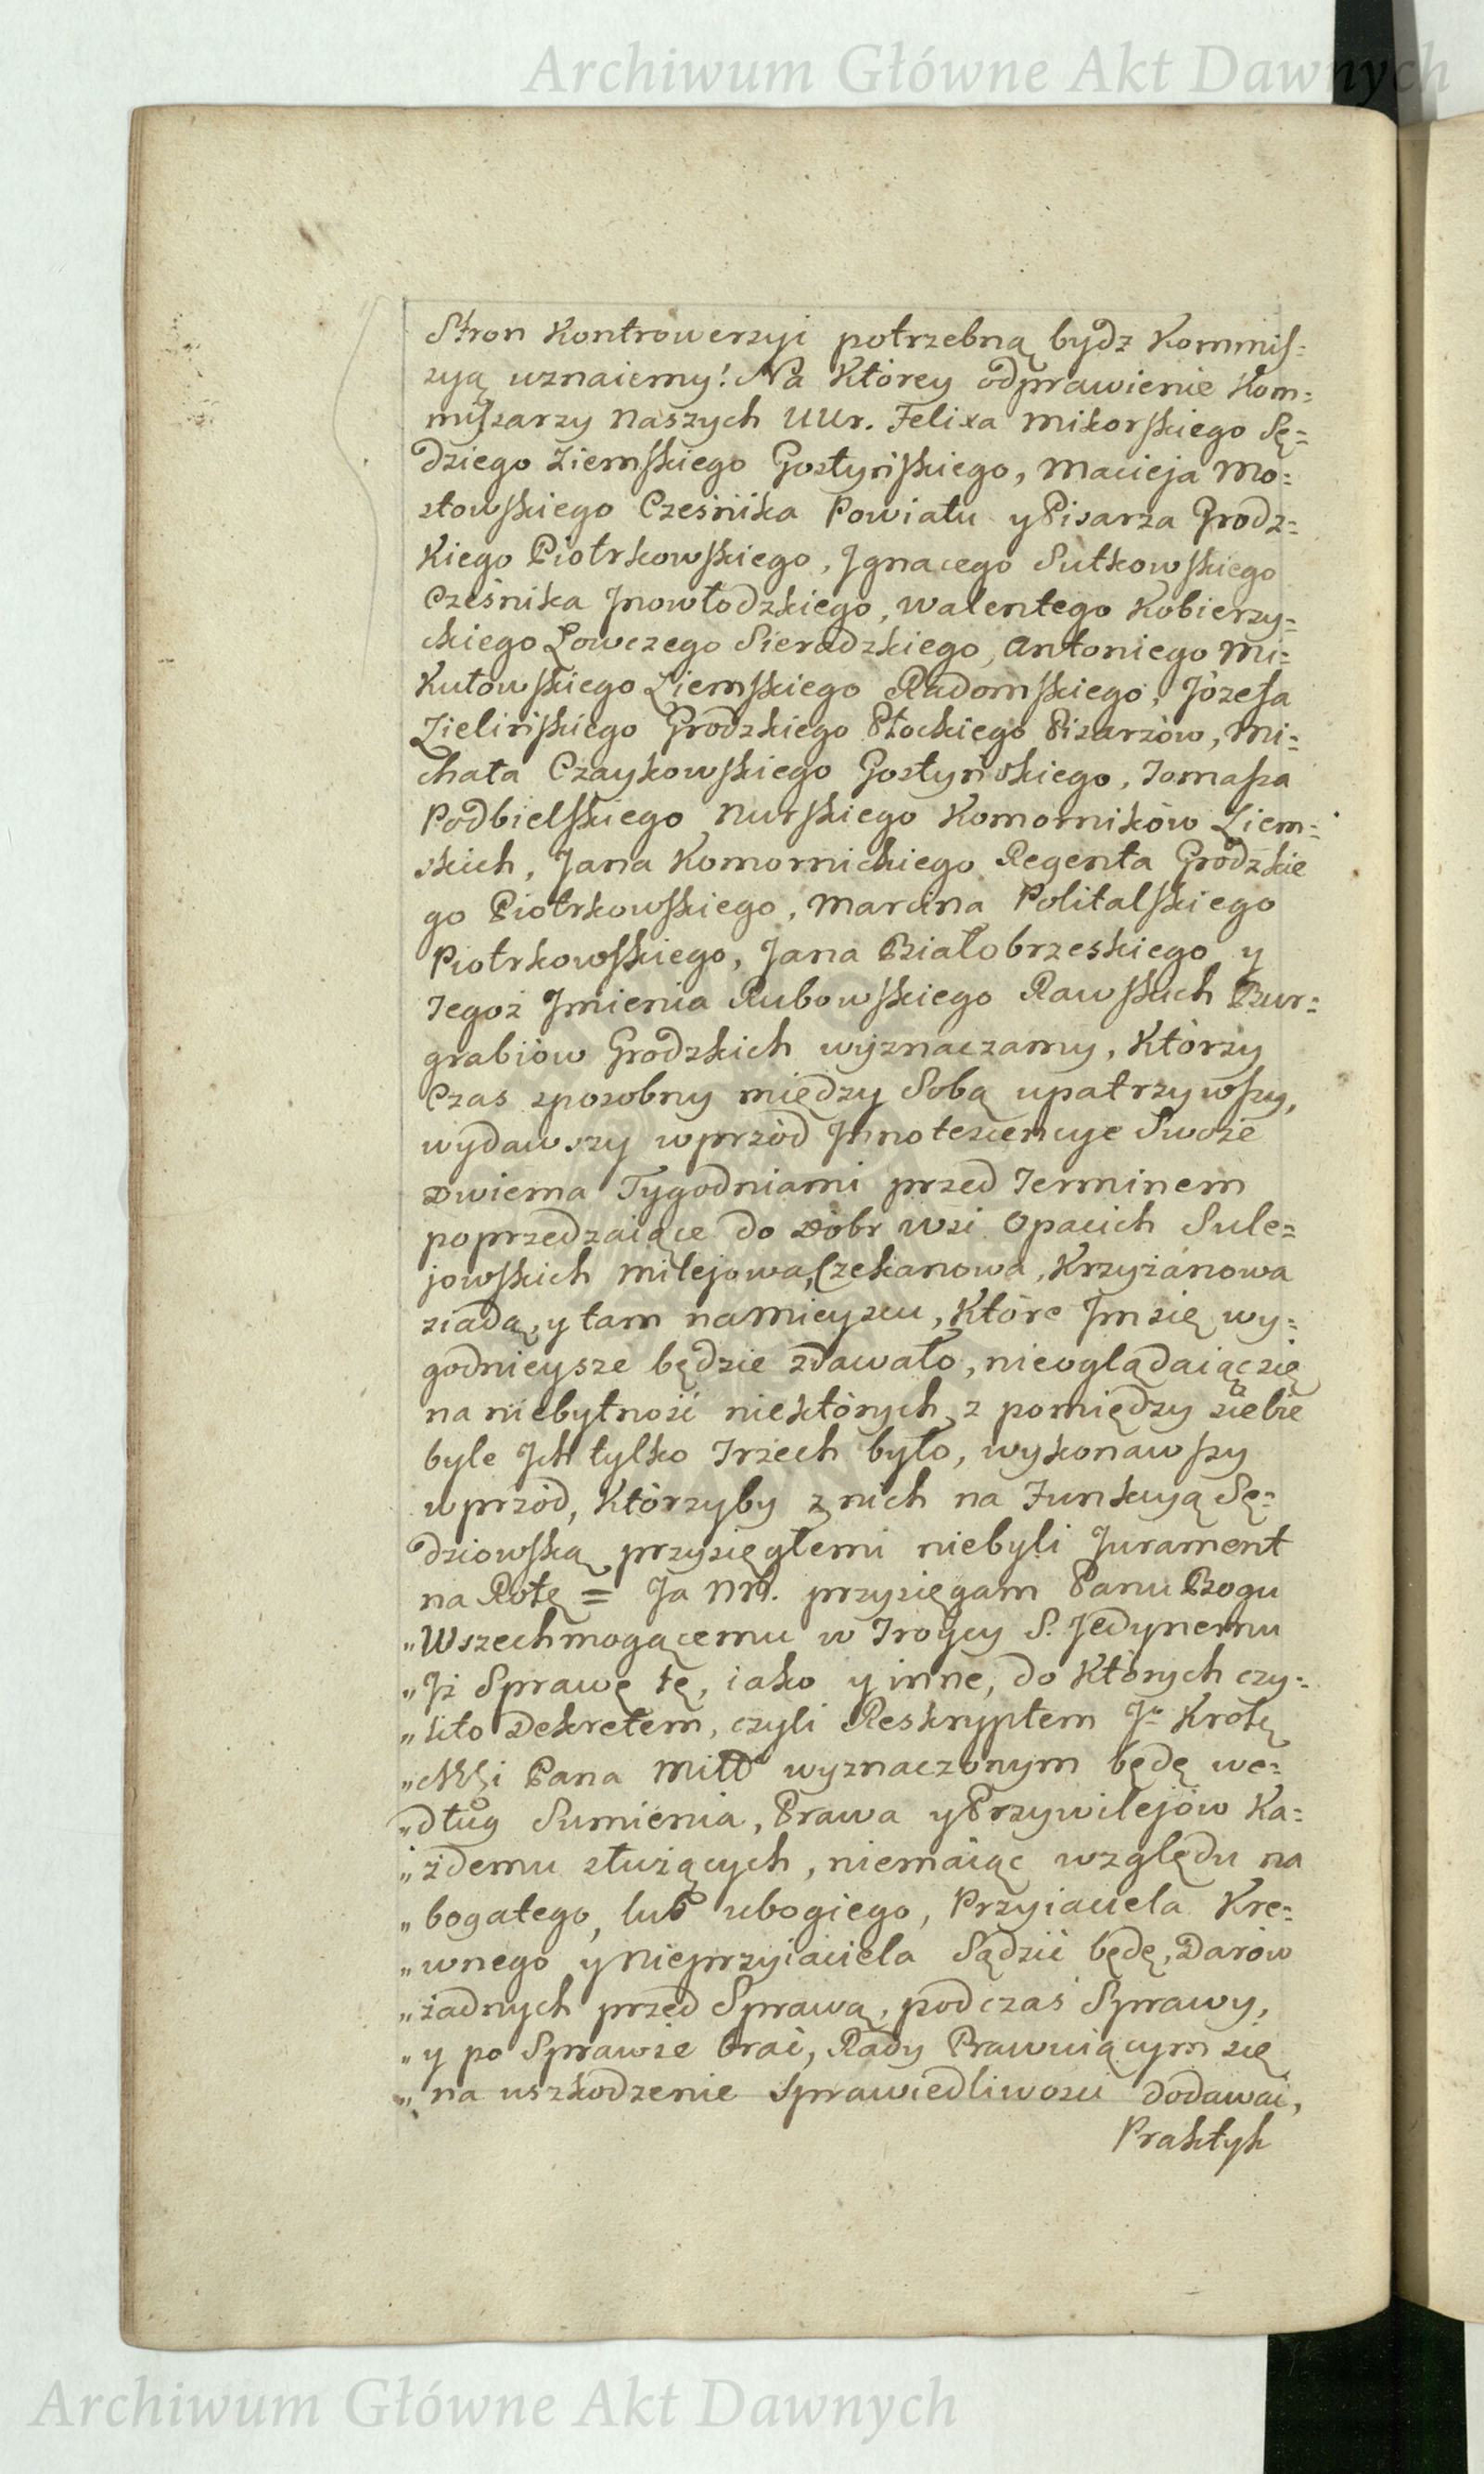 Archiwum Główne Akt Dawnych
Stron Kontrowerzyi potrzebną bydz Kommis=
syą uznaiemy! Na Którey odprawienie Kom=
missarzy Naszych UUr. Felixa Mikorskiego Sę=
dziego Ziemskiego Gostyńskiego, Macieja Mo=
stowskiego Cześnika Powiatu y Pisarza Grodz=
kiego Piotrkowskiego, Jgnacego Sutkowskiego
Cześnika Jnowłodzkiego, Walentego Kobierzy=
ckiego Łowczego Sieradzkiego, Antoniego Mi=
kułowskiego Ziemskiego Radomskiego, Józefa
Zielińskiego Grodzkiego Płockiego Pisarzów, Mi=
chała Czaykowskiego Gostyńskiego, Tomasza
Podbielskiego Nurskiego Komorników Ziem=
skich, Jana Komornickiego Regenta Grodzkie
go Piotrkowskiego, Marcina Politalskiego
Piotrkowskiego, Jana Białobrzeskiego y
Tegoż Jmienia Rubowskiego Rawskich Bur=
grabiów Grodzkich wyznaczamy, Którzy
Czas sposobny między Sobą upatrzywszy,
wydawszy wprzód Jnnotescencye Swoie
Dwiema Tygodniami przed Terminem
poprzedzaiące do Dóbr wsi Opacich Sule=
jowskich Milejowa, Czekanowa, Krzyżanowa
ziadą, y tam na mieyscu, Które Jm się wy=
godnieysze będzie zdawało, nieoglądaiąc się
na niebytność niektórych z pomiędzy siebie
byle Jch tylko Trzech było, wykonawszy
wprzód, Którzyby z nich na Funkcyą Sę=
dziowską przysięgłemi niebyli Jurament
na Rotę = Ja NN. przysięgam Panu Bogu
„Wszechmogącemu w Troycy S. Jedynemu
„Jż Sprawę tę, iako y inne, do Których czy=
„lito Dekretem, czyli Reskryptem Jº Krolę
„Mci Pana Miłº wyznaczonym będę we=
„dług Sumienia, Prawa y Przywilejów Ka=
„żdemu służących, niemaiąc względu na
„bogatego, lub ubogiego, Przyiaciela Kre=
„wnego y Nieprzyiaciela Sądzić będę, Darów
„żadnych przed Sprawą, podczas Sprawy,
„y po Sprawie brać, Rady Prawuiącym się
„na uszkodzenie Sprawiedliwosci dodawać,
Praktyk
Archiwum Główne Akt Dawnych